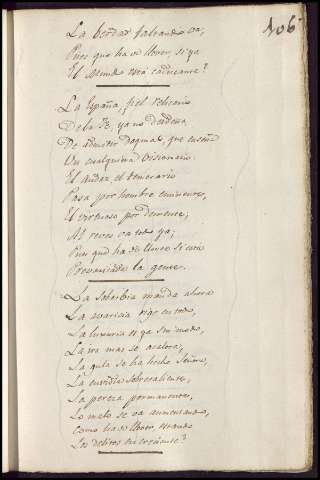 106
La verdad faltando va,
Pues que ha de llover, si ya
El Mundo está caducante?
La España, fiel relicario
De la Fe, ya no desdena
De admitir dogmas, que enseña
Un cualquiera Visionario.
El Audaz, el temerario
Pasa por hombre eminente,
El virtuoso por demente,
Al reves va todo ya;
Pues qué ha de llover si está
Prevaricada la gente.
La soberbia manda ahora
La avaricia rige en todo,
La luxuria es ya sin modo,
La ira mas se acalora,
La gula se ha hecho Señora,
La envidia sobresaliente,
La pereza permanente,
Lo malo se va aumentando,
Como ha de llover, estando
Los delitos en creciente?